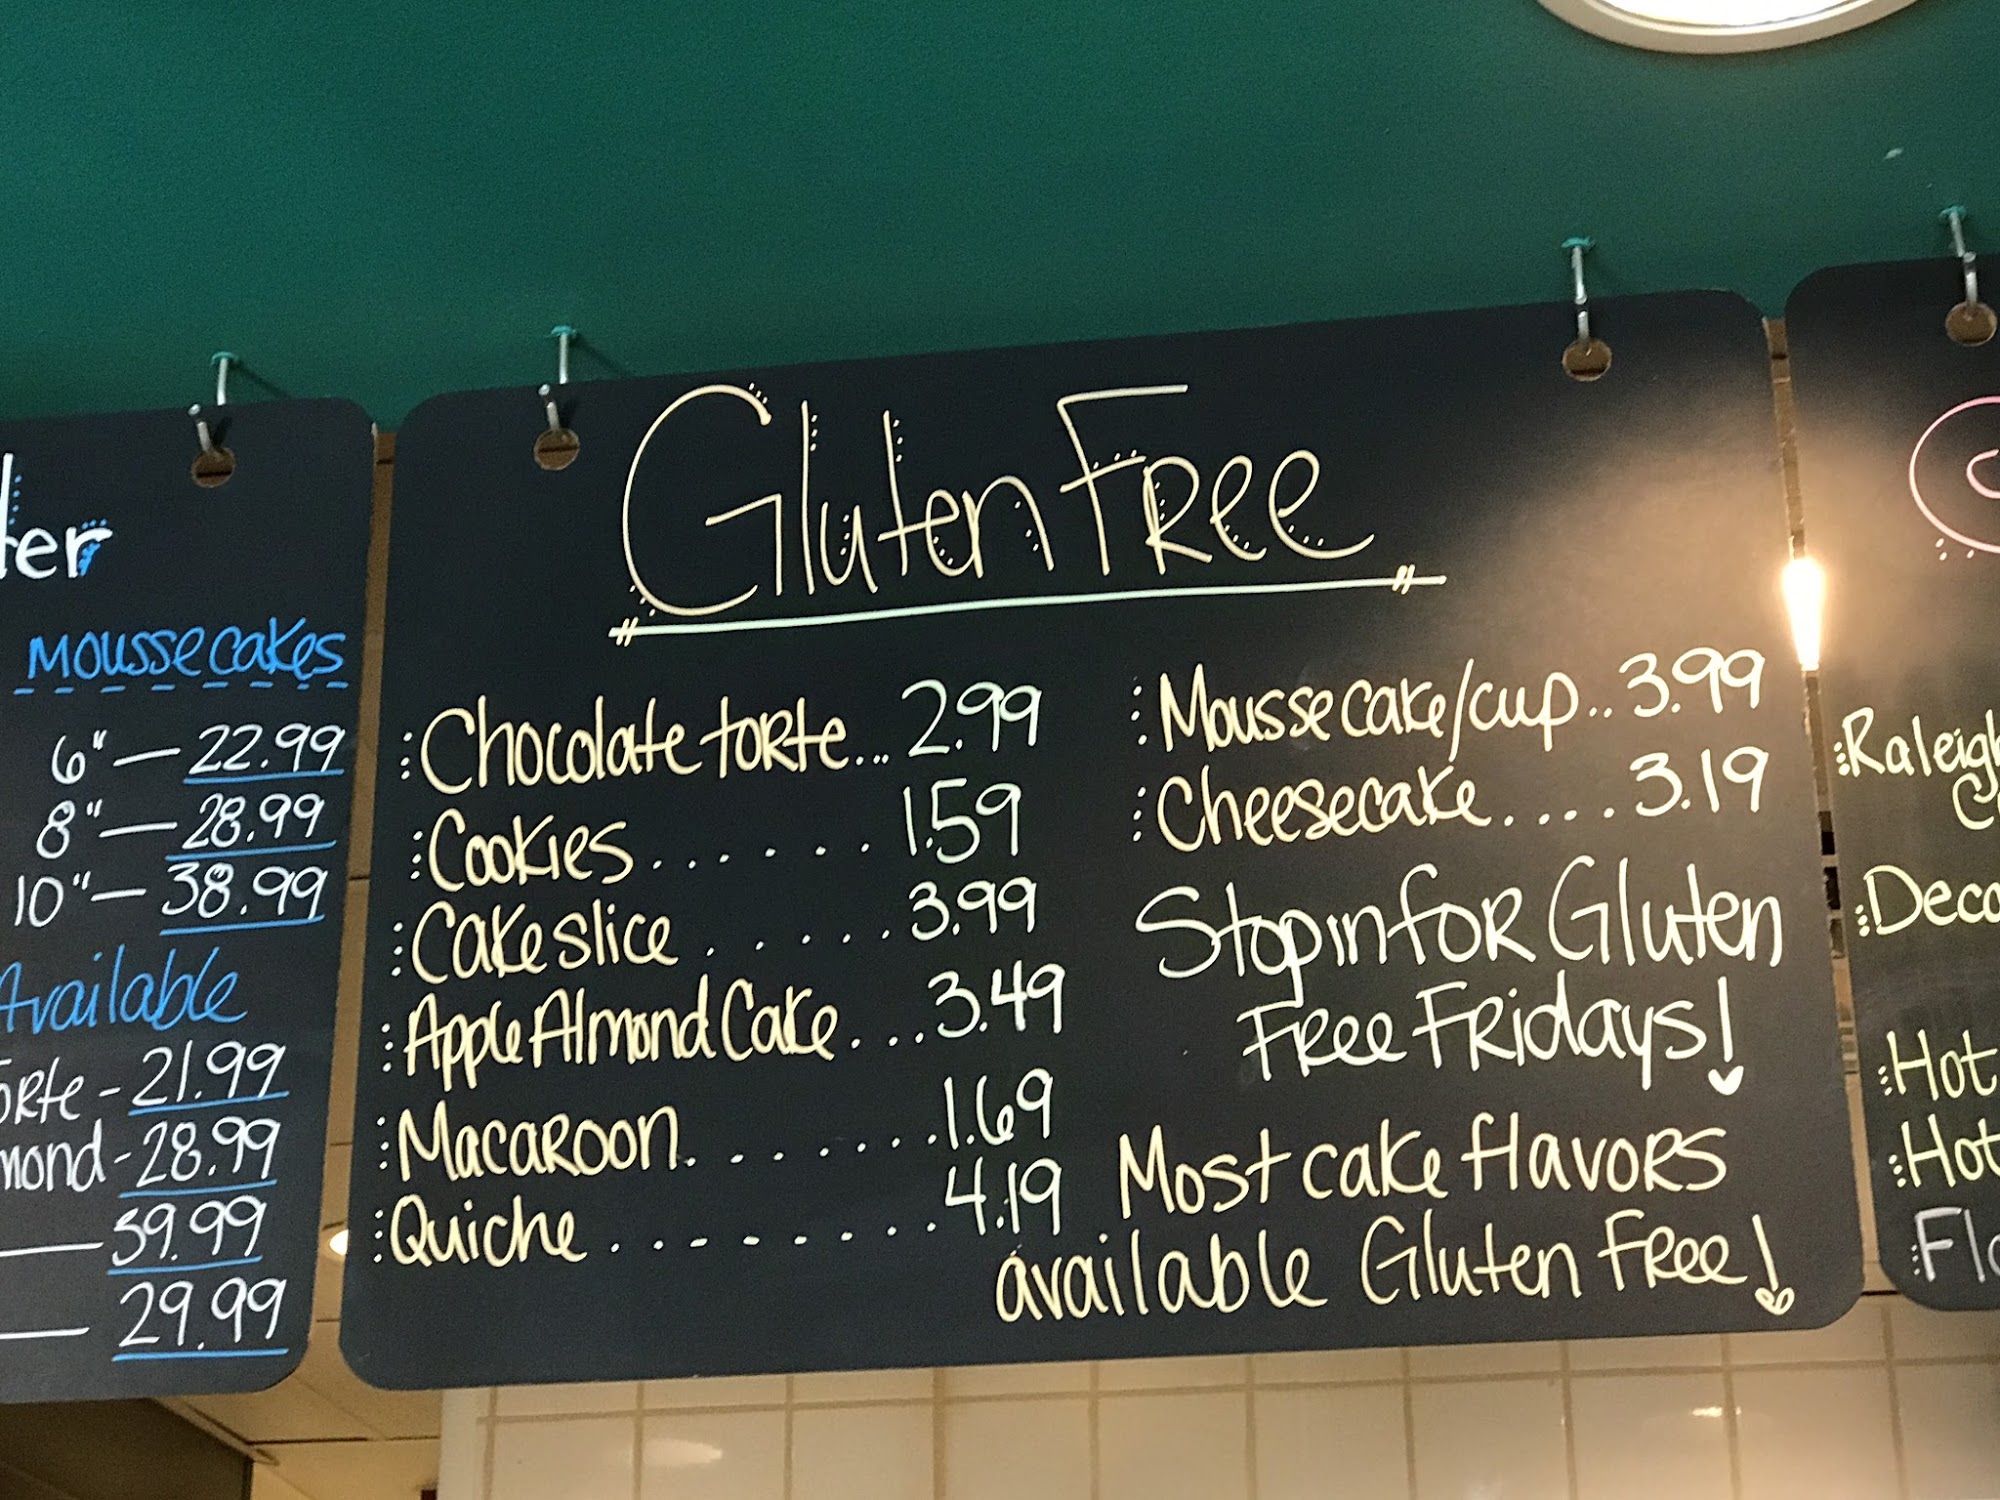 Mousse cakes
6" — 22.99
8" — 28.99
10" — 38.99
Available
21.99
28.99
39.99
29.99
Gluten Free
Chocolate torte... 2.99
Cookies....... 1.59
Cake slice...... 3.99
Apple Almond Cake... 3.49
Macaroon........ 1.69
Quiche......... 4.19
Mousse cake/cup.. 3.99
Cheesecake..... 3.19
Stop in for Gluten
Free Fridays!
Most cake flavors
available Gluten Free!
Raleigh
Hot
Hot